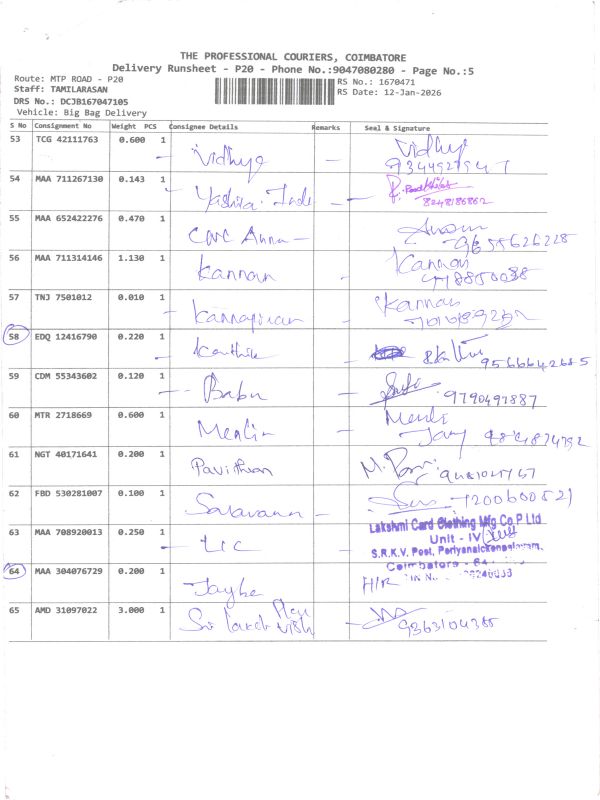 THE PROFESSIONAL COURIERS, COIMBATORE
Delivery Runsheet - P20 - Phone No.:9047080280 - Page No.:5
Route: MTP ROAD - P20
RS No.: 1670471
Staff: TAMILARASAN
RS Date: 12-Jan-2026
DRS No.: DCJB167047105
Vehicle: Big Bag Delivery
S No Consignment No Weight PCS Consignee Details Remarks Seal & Signature
53 TCG 42111763 0.600 1 Vidhya - Vidhya
54 MAA 711267130 0.143 1 - 8248186862
55 MAA 652422276 0.470 1 - 9655626228
56 MAA 711314146 1.130 1 Kannan - Kannan
57 TNJ 7501012 0.010 1 - Kannan
58 EDQ 12416790 0.220 1 - 9566642685
59 CDM 55343602 0.120 1 Babu - 9790497887
60 MTR 2718669 0.600 1 Menlin -
61 NGT 40171641 0.200 1 Pavithran -
62 FBD 530281007 0.100 1 Saravann - 7200600521
63 MAA 708920013 0.250 1 LIC -
Lakshmi Card Clothing Mfg Co P Ltd
Unit - IV
S.R.K.V. Post, Periyanaickenpalayam,
Coimbatore - 64
64 MAA 304076729 0.200 1 H/R
65 AMD 31097022 3.000 1 Sri 9363104355